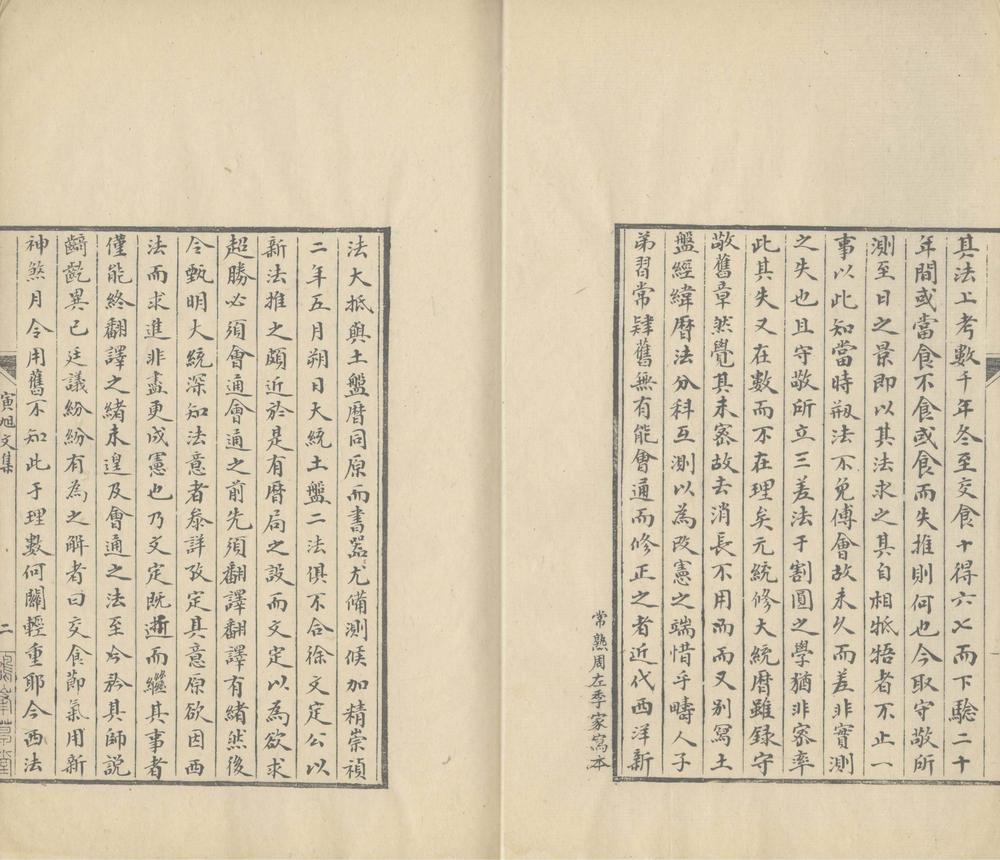 其法上考數千年冬至交食十得六七而下驗二十
年間或當食不食或食而失推則何也今取守敬所
測至日之景即以其法求之其自相牴牾者不止一
事以此知當時剏法不免傅會故未久而差非實測
之失也且守敬所立三差法于割圓之學猶非密率
此其失又在數而不在理矣元統修大統曆雖錄守
敬舊章然覺其未密故去消長不用而又別寫土
盤經緯曆法分科互測以為改憲之端惜乎疇人子
弟習常肄舊無有能會通而修正之者近代西洋新
常熟周左季家寫本
法大抵與土盤曆同原而書器尤備測候加精崇禎
二年五月朔日大統土盤二法俱不合徐文定公以
新法推之頗近於是有曆局之設而文定以為欲求
超勝必須會通會通之前先須翻譯翻譯有緒然後
令甄明大統深知法意者叅詳攷定其意原欲因西
法而求進非盡更成憲也乃文定既逝而繼其事者
僅能終翻譯之緒未遑及會通之法至今矜其師說
齮齕異己廷議紛紛有為之解者曰交食節氣用新
神煞月令用舊不知此于理數何關輕重耶今西法
寅旭文集
二
鴿峯草堂